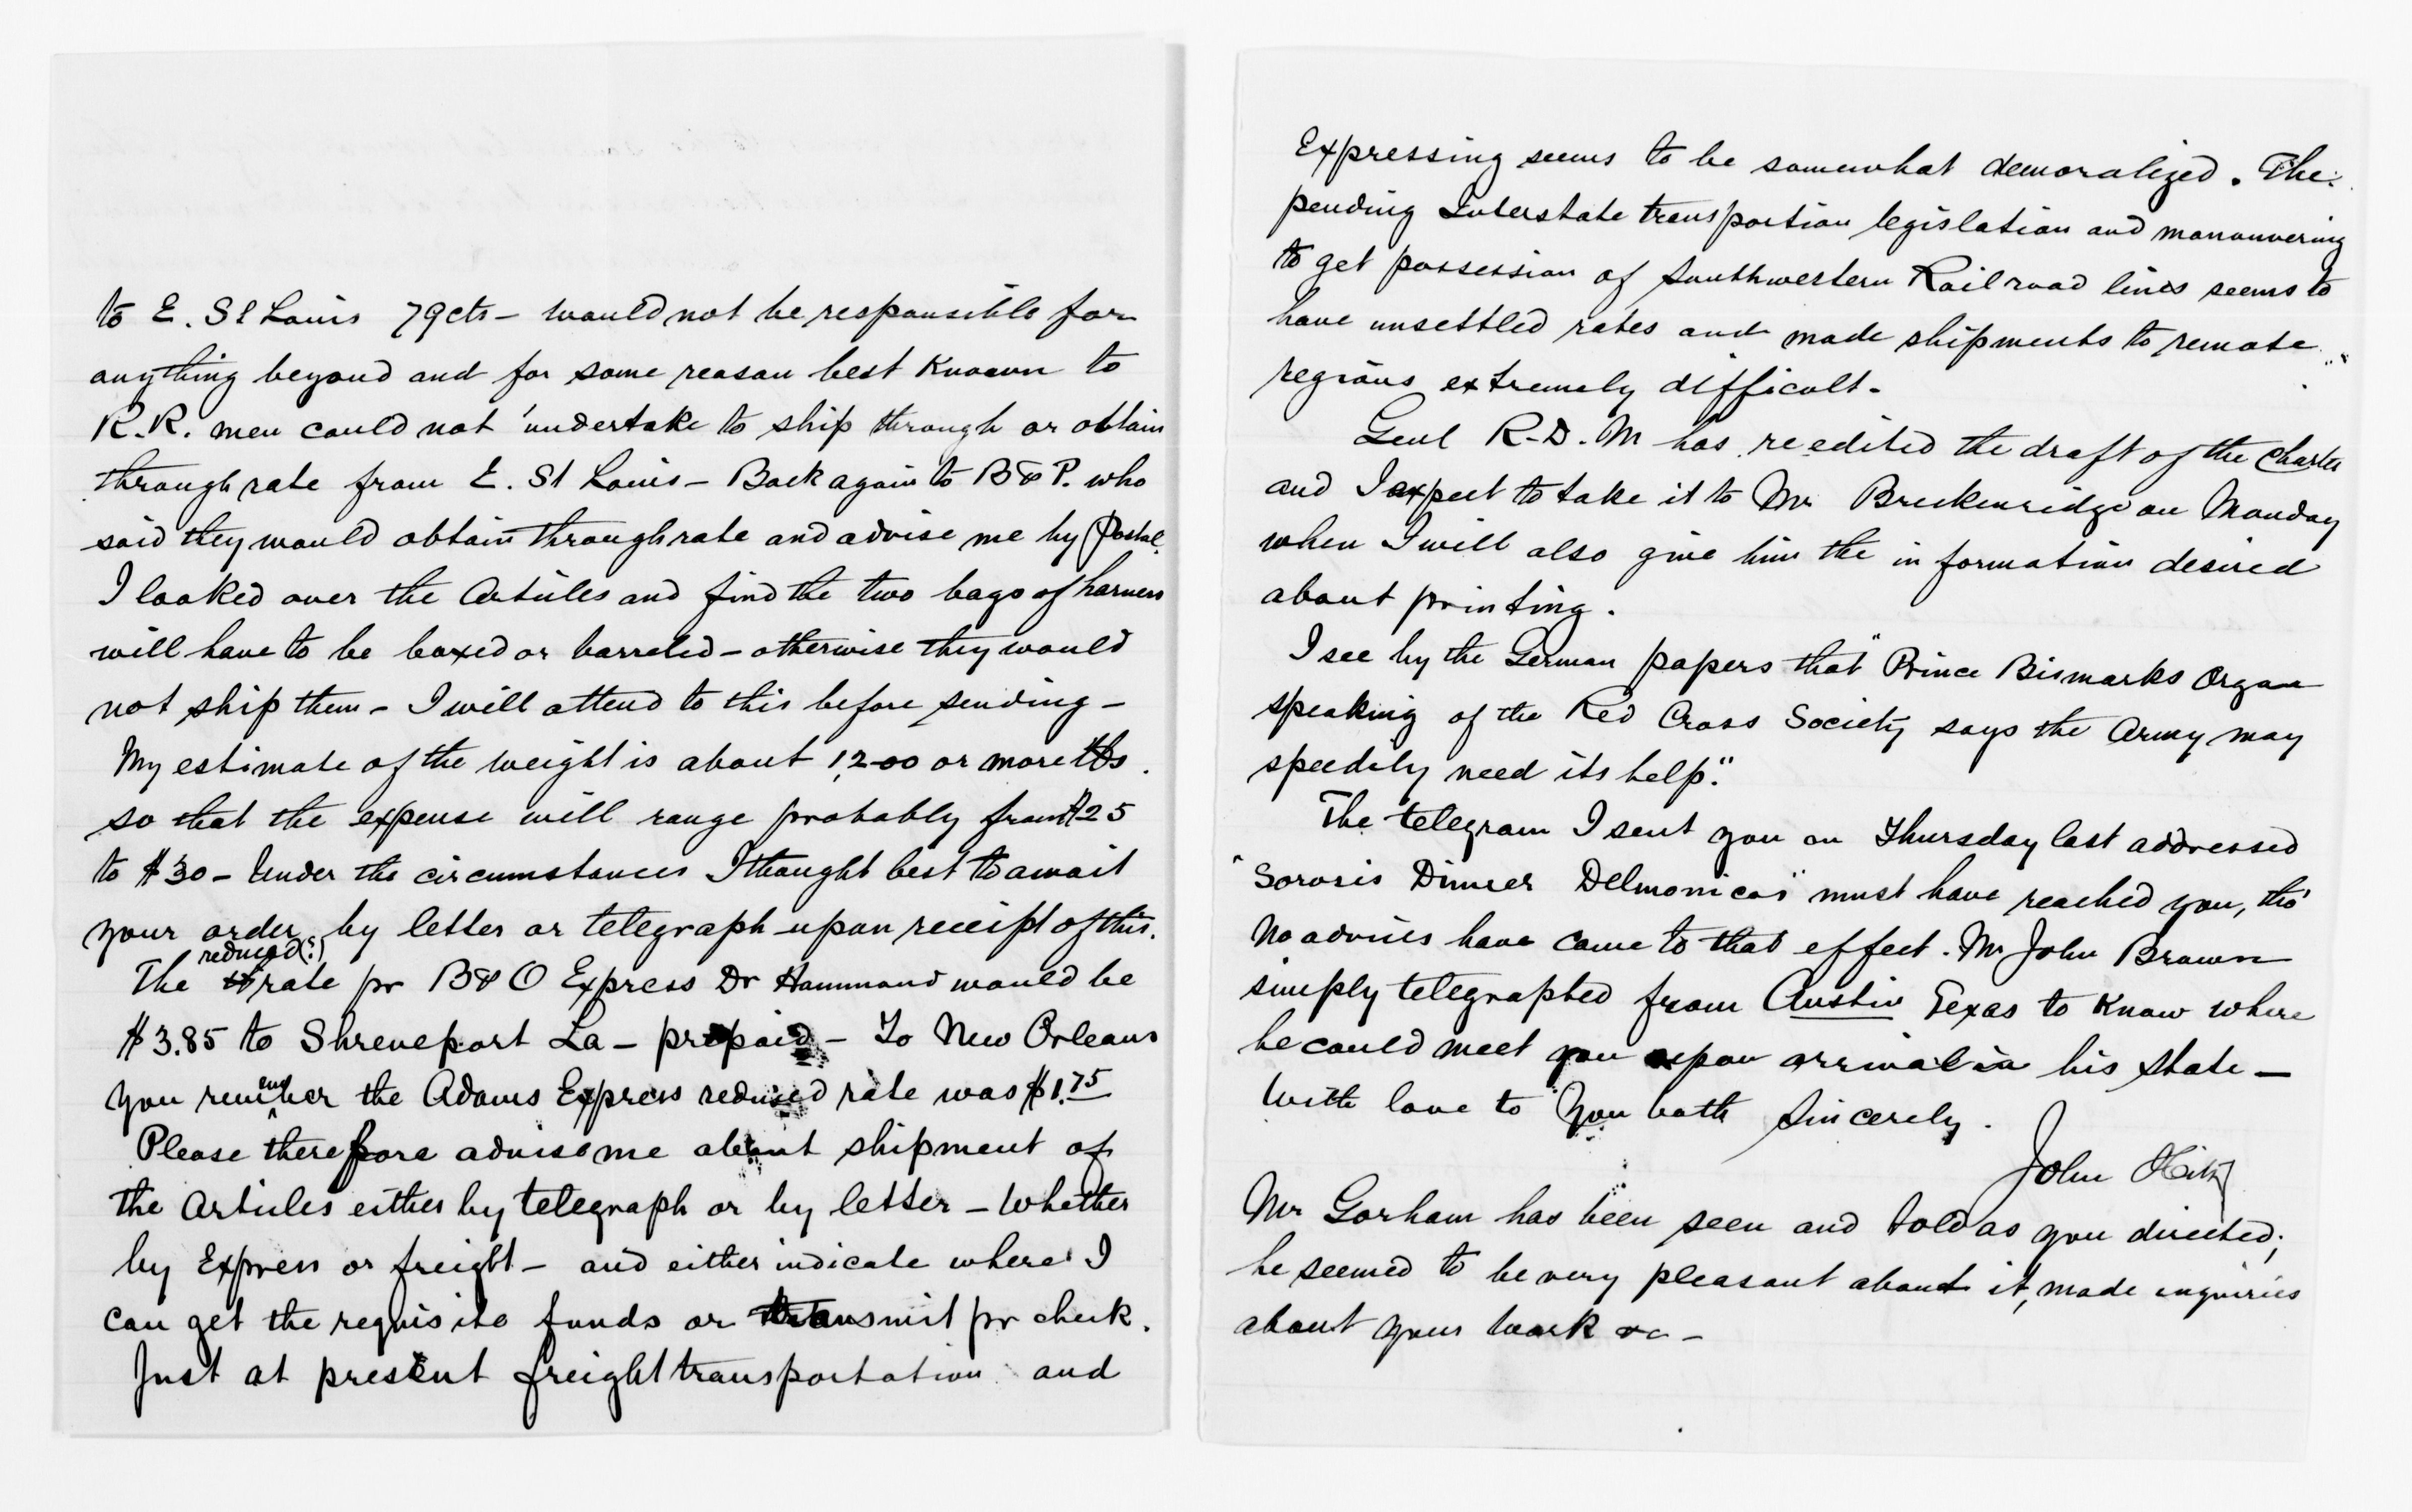 to E. St Louis 79cts – would not be responsible for
anything beyond and for some reason best known to
R.R. men could not undertake to ship through or obtain
through rate from E. St Louis – Back again to B & P. who
said they would obtain through rate and advise me by postal.
I looked over the Articles and find the two bags of harness
will have to be boxed or barreled – otherwise they would
not ship them – I will attend to this before sending –
My estimate of the weight is about 1,200 or more lbs.
so that the expense will range probably from $25
to $30 – Under the circumstances I thought best to await
your order by letter or telegraph upon receipt of this.
reduced (?)
The rate pr B & O Express Dr Hammond would be
$3.85 to Shreveport La – prepaid – To New Orleans
you remember the Adams Express reduced rate was $1.75
Please therefore advise me about shipment of
the Articles either by telegraph or by letter – Whether
by Express or freight – and either indicate where I
can get the requisite funds or transmit pr check.
Just at present freight transportation and
Expressing seems to be somewhat demoralized. The
pending Interstate transportion legislation and manouvering
to get possession of Southwestern Railroad lines seems to
have unsettled rates and made shipments to remote
regions extremely difficult.
Genl R.D.M has re edited the draft of the Charter
and I expect to take it to Mr Breckenridge on Monday
when I will also give him the information desired
about printing.
I see by the German papers that "Prince Bismarks Organ
speaking of the Red Cross Society says the Army may
speedily need its help."
The telegram I sent you on Thursday last addressed
"Sorosis Dinner Delmonicos" must have reached you, tho'
no advices have come to that effect. Mr John Brown
simply telegraphed from Austin Texas to know where
he could meet you upon arrival in his state –
With love to you both Sincerely.
John Hitz
Mr Gorham has been seen and told as you directed;
he seemed to be very pleasant about it, made inquiries
about your work &c –